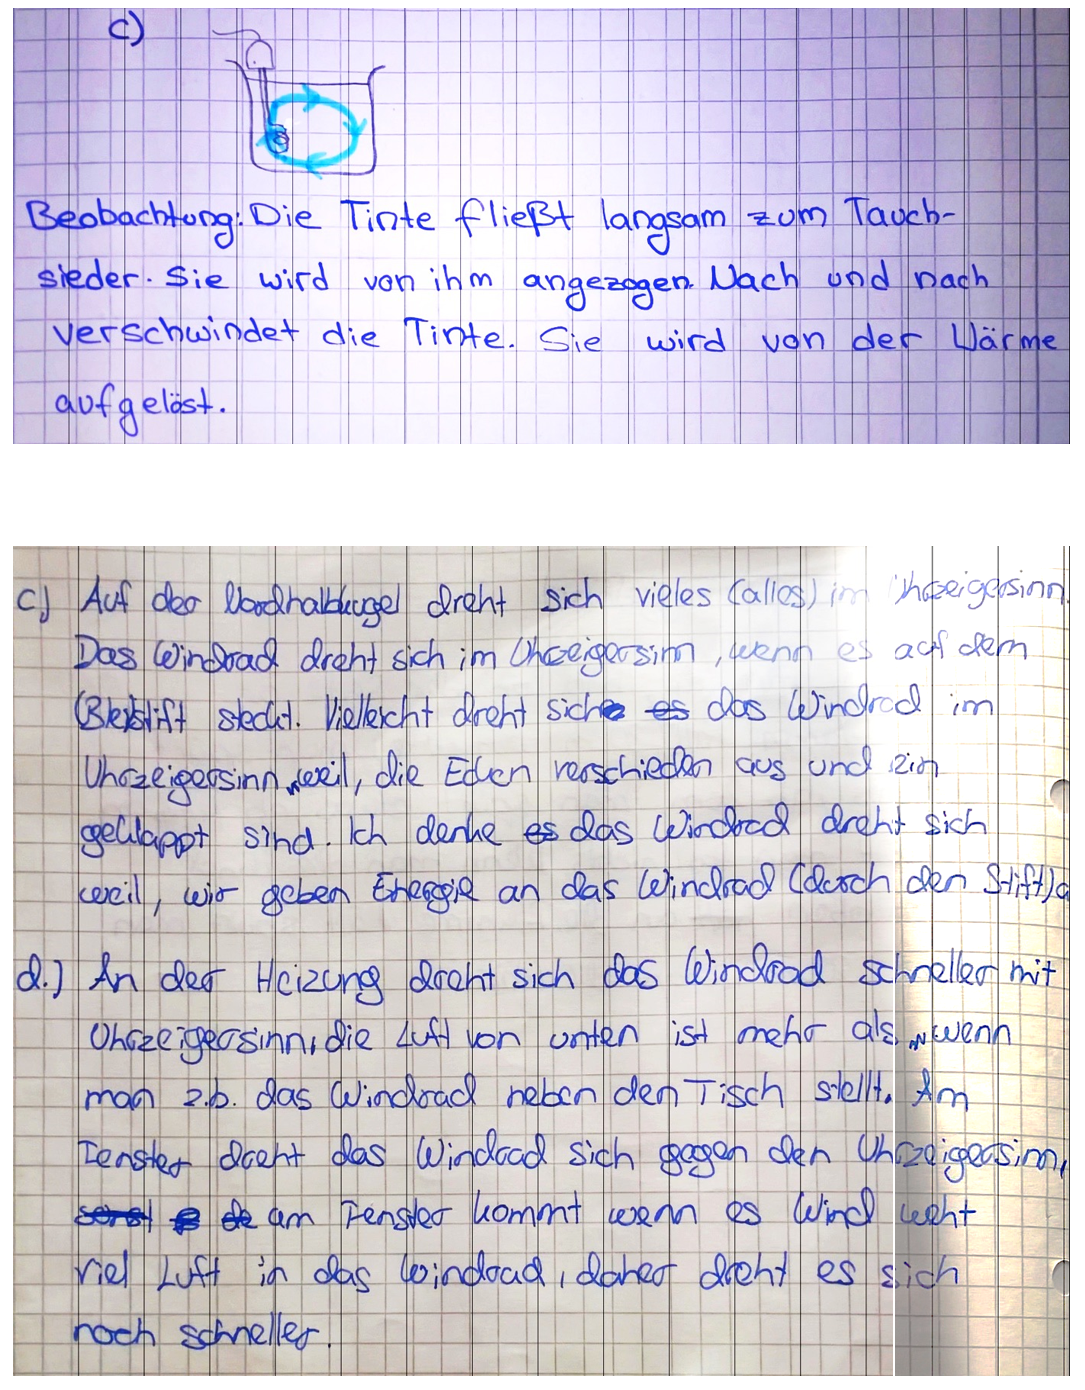 c)
Beobachtung: Die Tinte fließt langsam zum Tauch-
sieder. Sie wird von ihm angezogen. Nach und nach
verschwindet die Tinte. Sie wird von der Wärme
aufgelöst.
c) Auf der Nordhalbkugel dreht sich vieles (alles) im Uhrzeigersinn.
Das Windrad dreht sich im Uhrzeigersinn, wenn es auf dem
Bleistift steckt. Vielleicht dreht sich es das Windrad im
Uhrzeigersinn weil, die Ecken verschieden aus und ein
geklappt sind. Ich denke es das Windrad dreht sich
weil, wir geben Energie an das Windrad (durch den Stift)
d.) An der Heizung dreht sich das Windrad schneller mit
Uhrzeigersinn, die Luft von unten ist mehr als, wenn
man z.b. das Windrad neben den Tisch stellt. Am
Fenster dreht das Windrad sich gegen den Uhrzeigersinn,
am Fenster kommt wenn es Wind weht
viel Luft in das Windrad, daher dreht es sich
noch schneller.